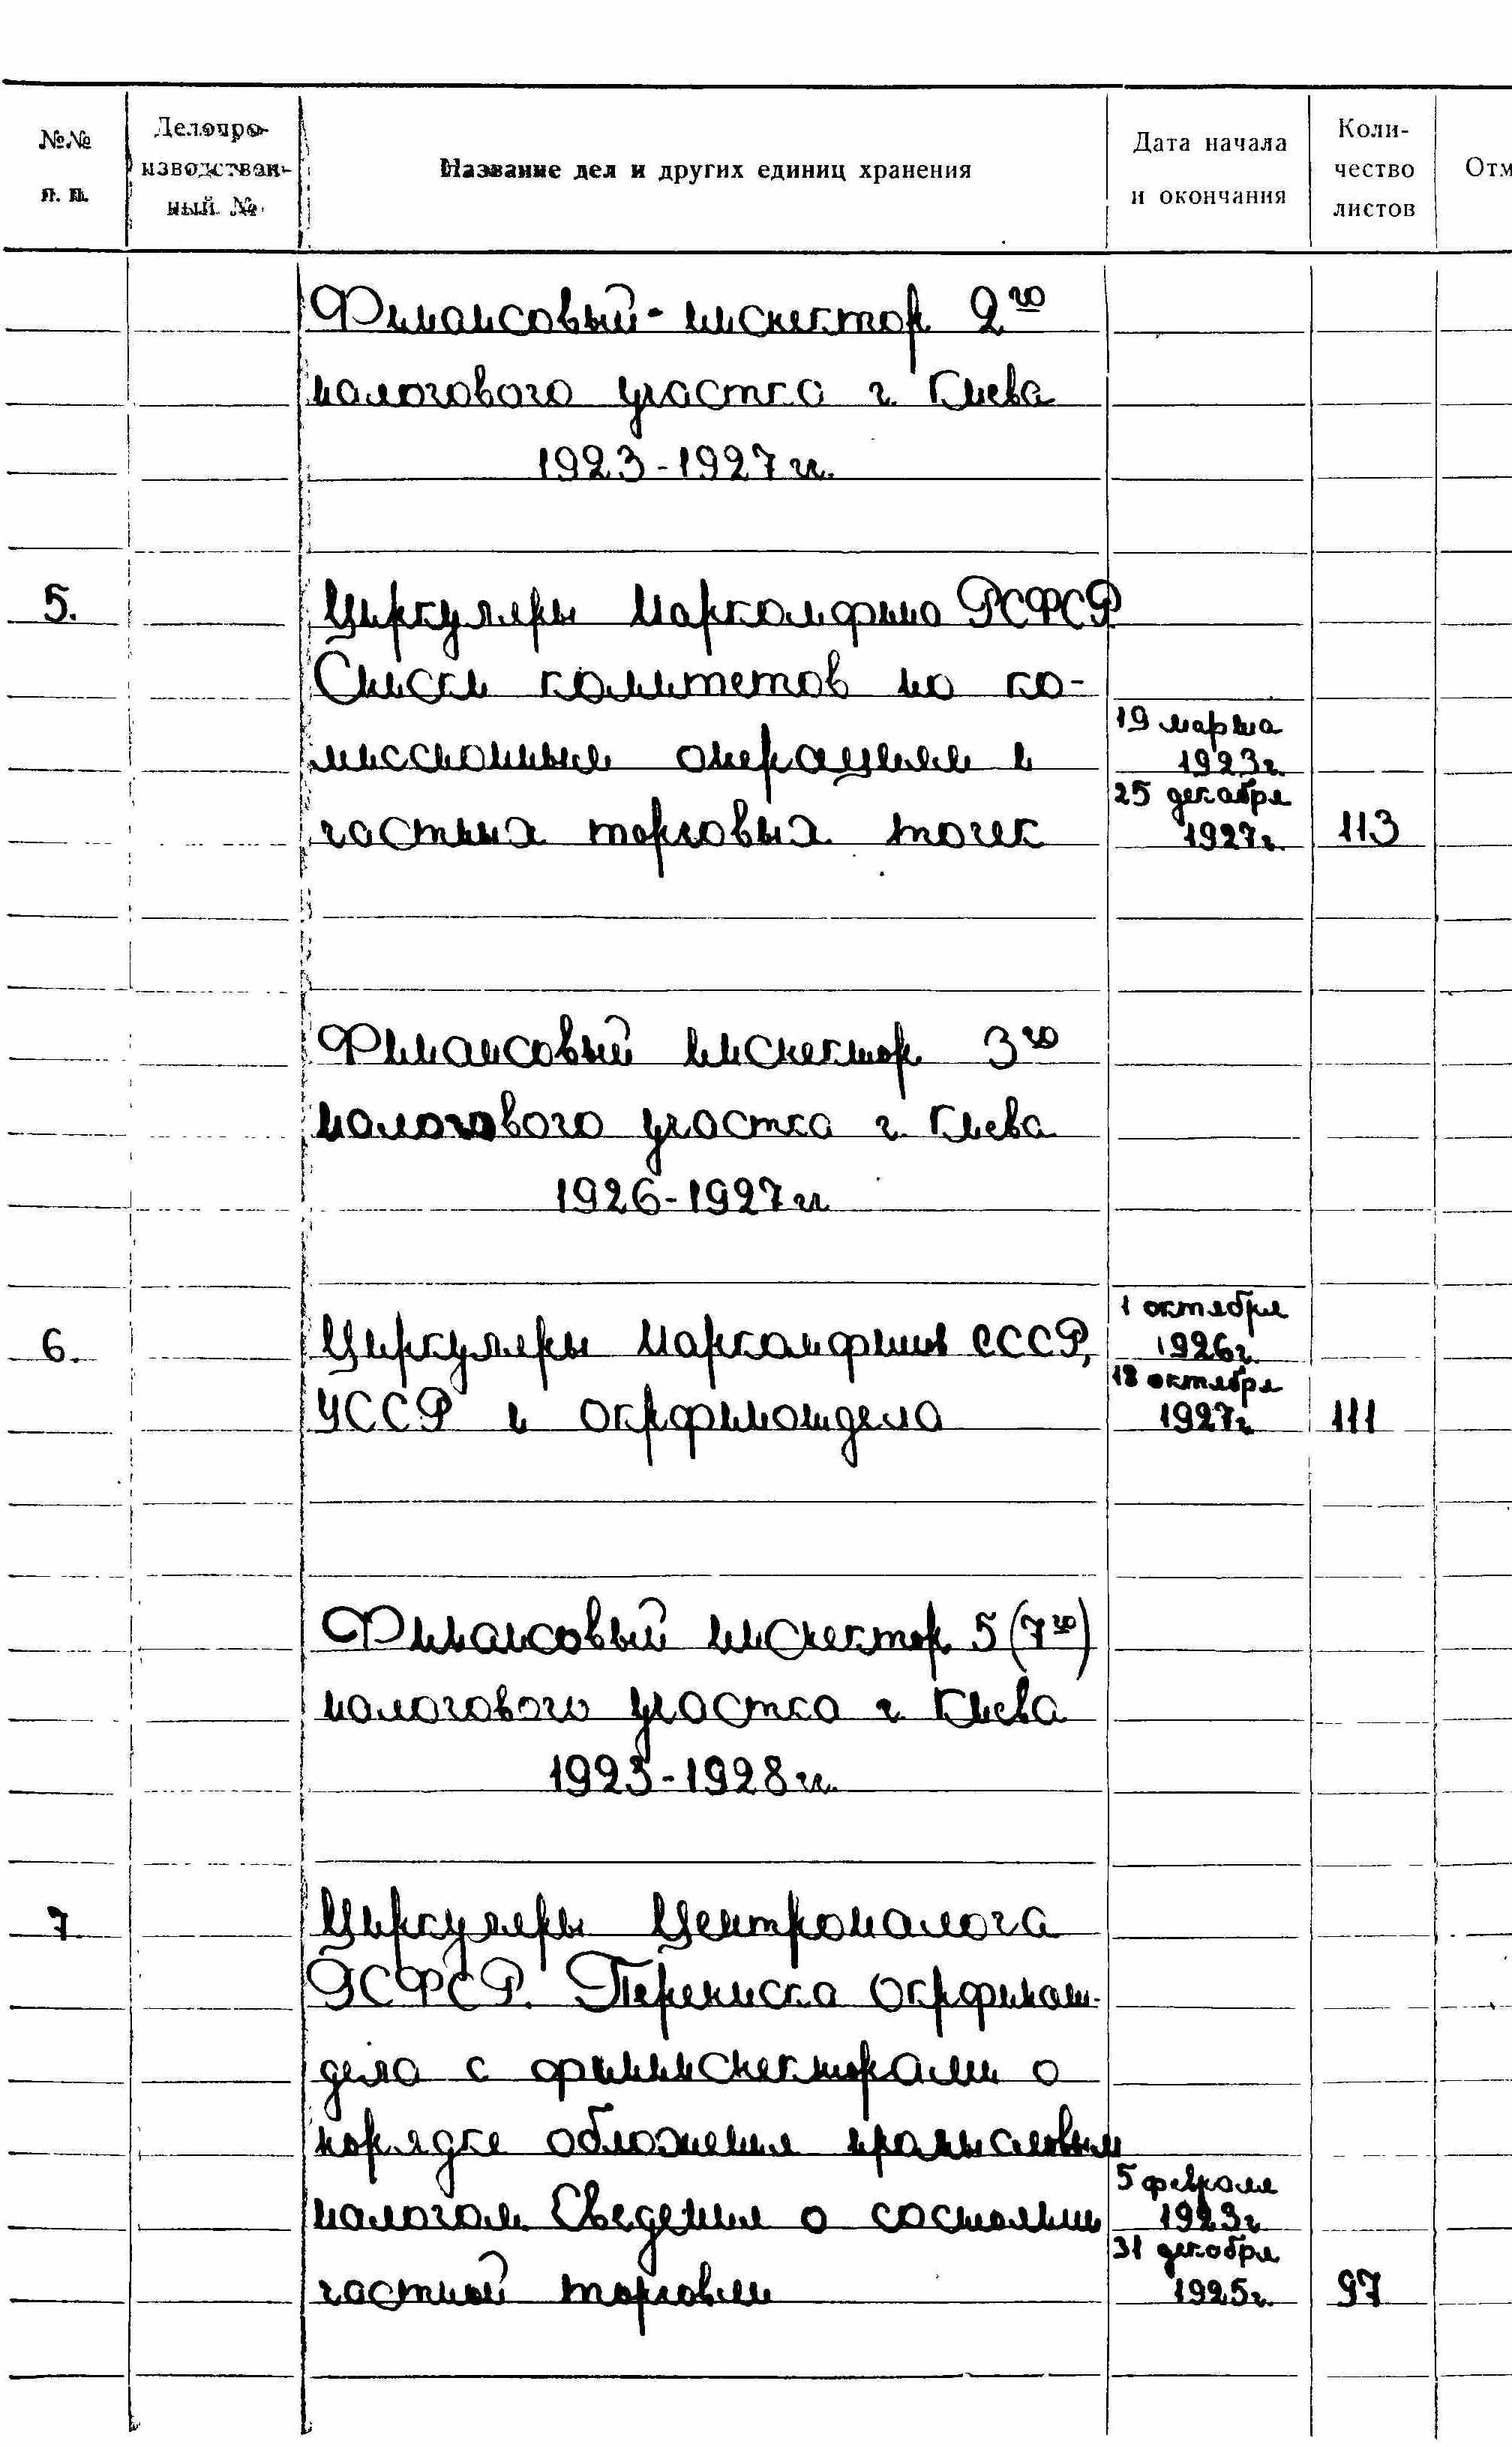 №№ п. п.
Делопро-
изводствен-
ный №
Название дел и других единиц хранения
Дата начала
и окончания
Коли-
чество
листов
Отм
Финансовый инспектор 2го
налогового участка г. Киева
1923-1927 гг.
5.
Циркуляры Наркомфина РСФСР
Списки комитетов по ко-
миссионным операциям и
частных торговых точек
19 марта
1923г.
25 декабря
1927г.
113
Финансовый инспектор 3го
налогового участка г. Киева
1926-1927 гг
6.
Циркуляры Наркомфина СССР,
УССР и Окрфинотдела
1 октября
1926г.
18 октября
1927г.
111
Финансовый инспектор 5 (7го)
налогового участка г. Киева
1923-1928 гг.
7
Циркуляры Центроналога
РСФСР. Переписка Окрфинот-
дела с фининспекторами о
порядке обложения промысловым
налогом. Сведения о состоянии
частной торговли
5 февраля
1923г
31 декабря
1925г.
97